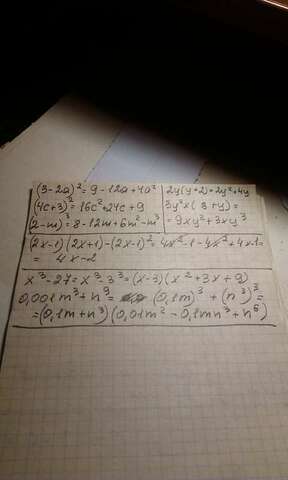 (3-2a)²=9-12a+4a²
(4c+3)²=16c²+24c+9
(2-m)³=8-12m+6m²-m³
2y(y+2)=2y²+4y
3y²x(3+y)=
=9xy²+3xy³
(2x-1)(2x+1)-(2x-1)²=4x²-1-4x²+4x-1=
= 4x-2
x³-27=x³-3³=(x-3)(x²+3x+9)
0,001m³+n⁹= (0,1m)³+(n³)³=
=(0,1m+n³)(0,01m²-0,1mn³+n⁶)